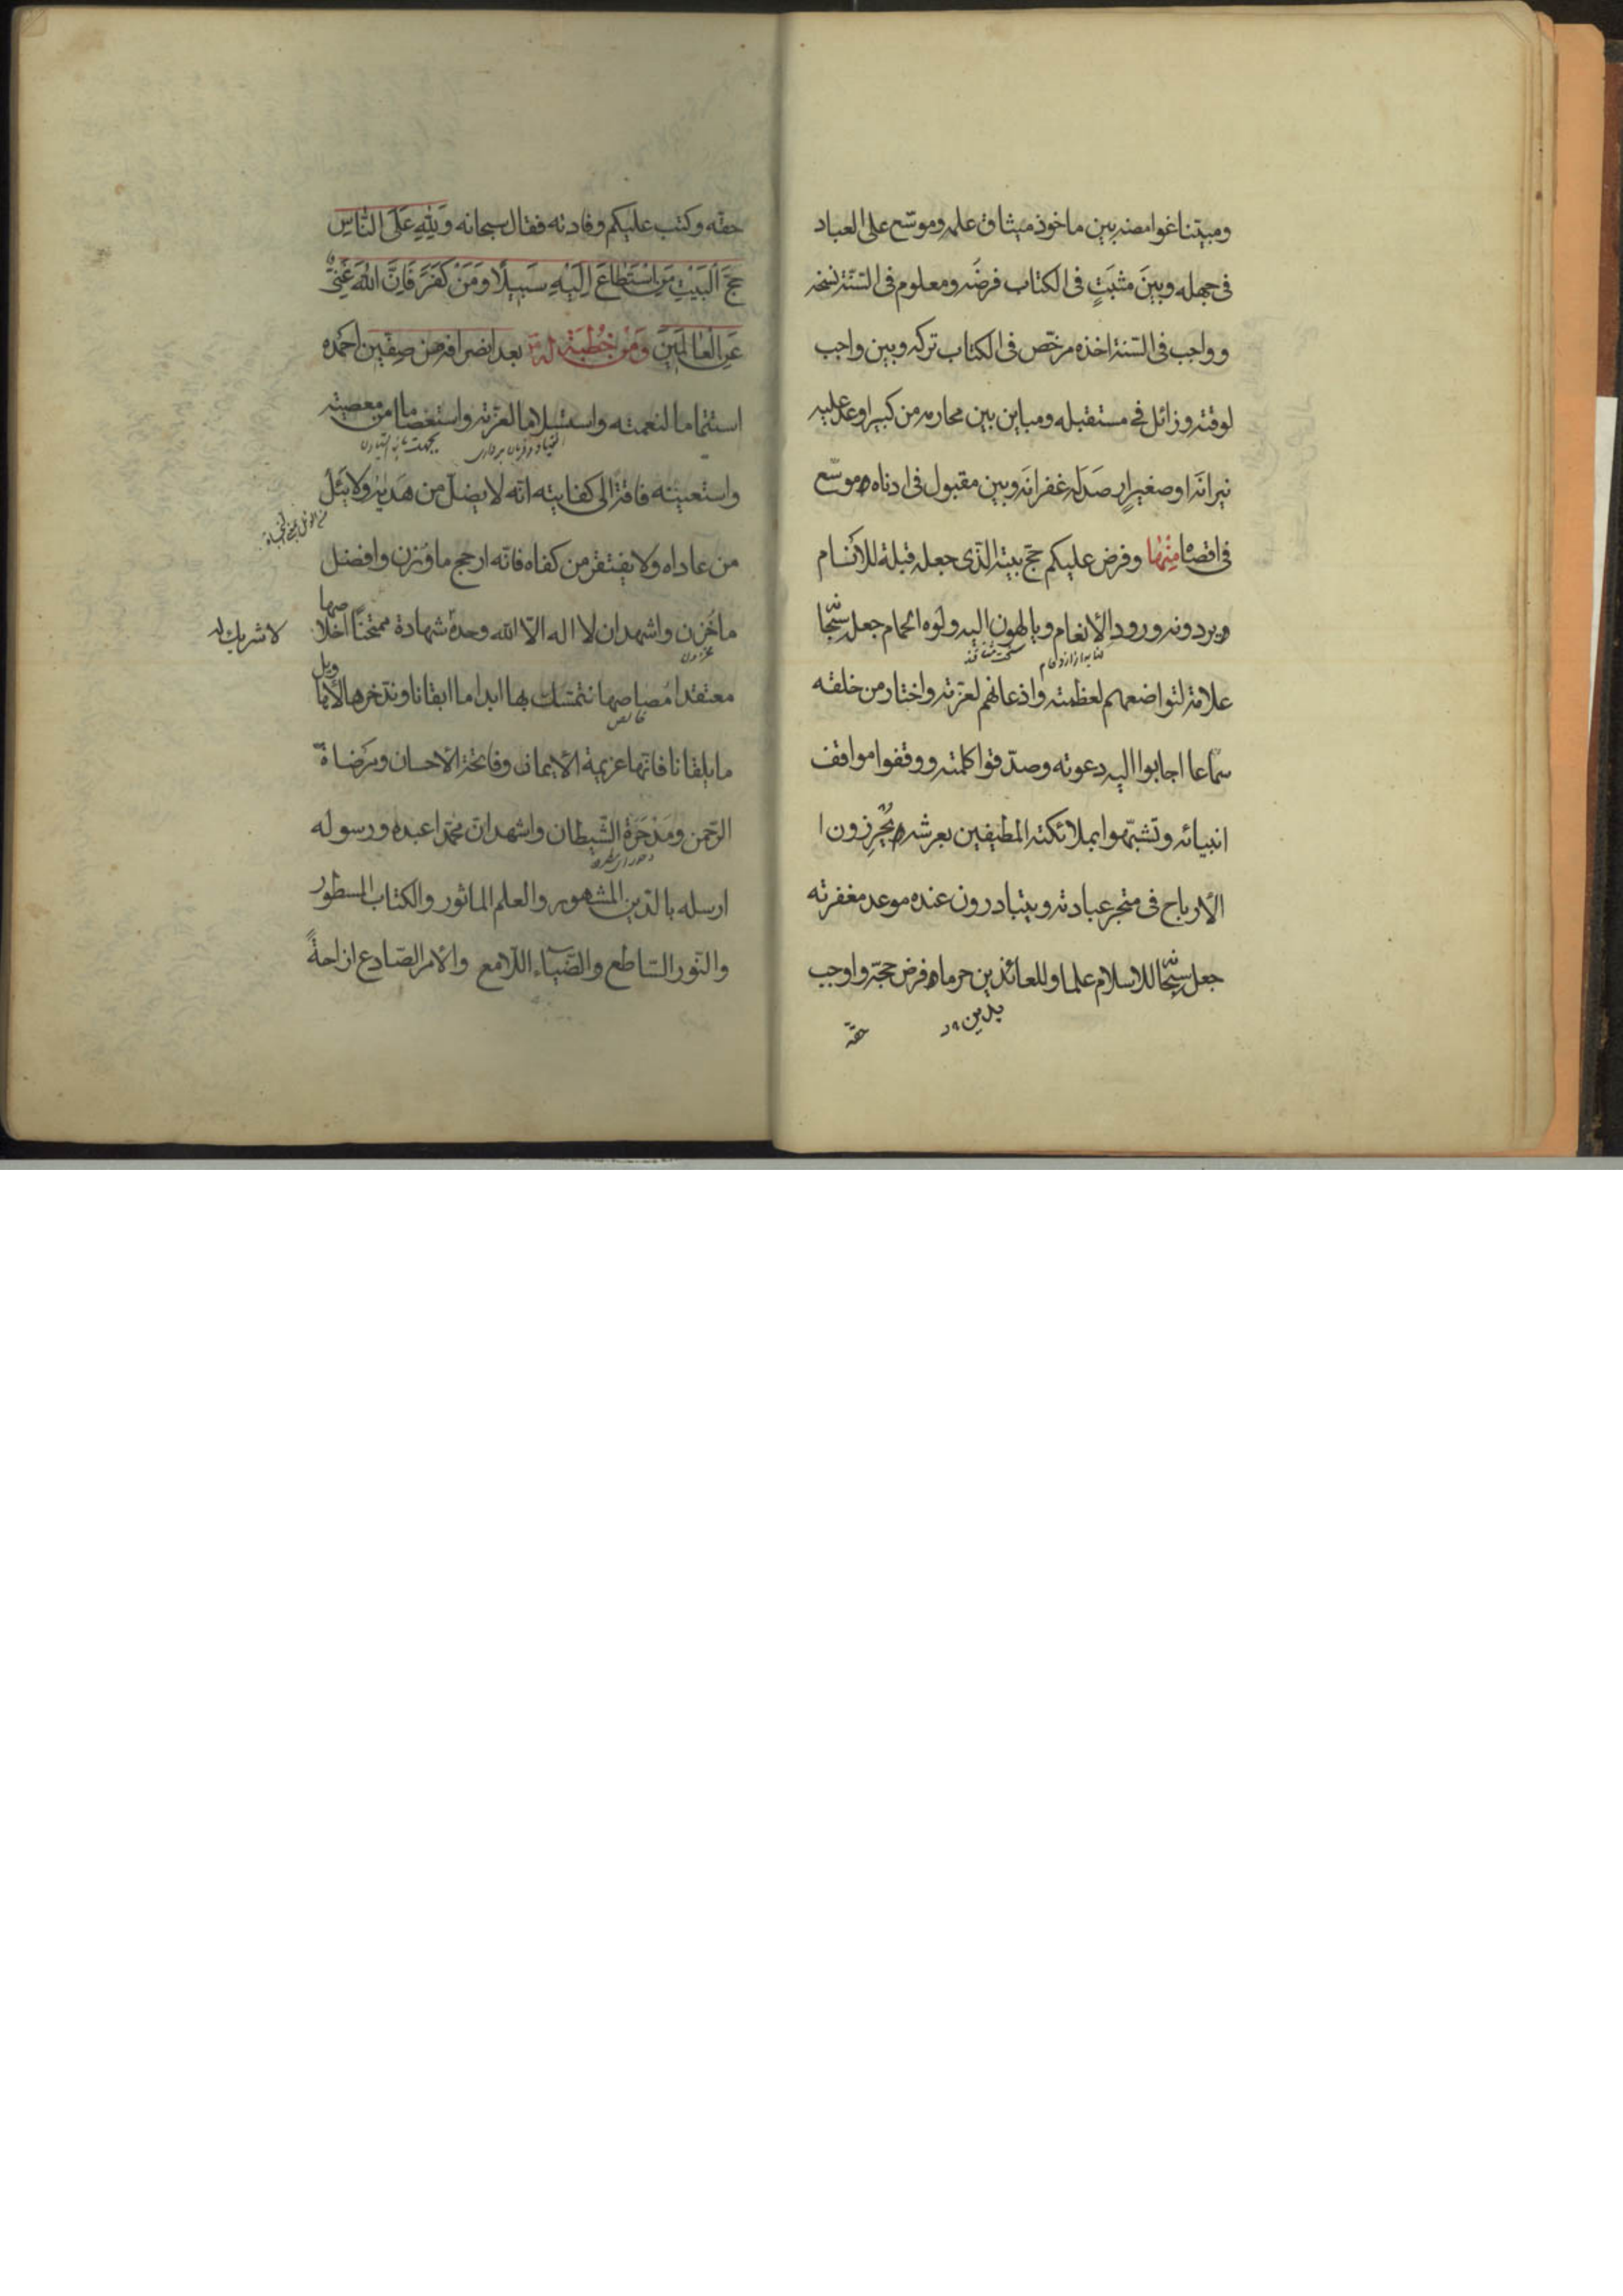 ومبيّنا غوامضه بين ماخوذ ميثاق علمه وموسّع على العباد
فى جهله وبينَ مثبَتٍ فى الكتاب فرضَه ومعلوم فى السّنّة نسخه
وواجب فى السّنة اخذه مرخّص فى الكتاب تركه وبين واجب
لوقته وزائل فى مستقبله ومباين بين محارمه من كبير اوعد عليه
نيرانَه او صغيرٍ ارصَدَ له غفرانَه وبين مقبول فى ادناه موسّع
فى اقصاه مِنْهَا وفرض عليكم حجّ بيته الّذى جعله قبلة للانام
يردونه ورود الأنعام ويالهون اليه ولوه الحمام جعله سبحانه
علامة لتواضعهم لعظمته واذعانهم لعزّته واختار من خلقه
سمّاعا اجابوا اليه دعوته وصدّقوا كلمته ووقفوا مواقف
انبيائه وتشبّهوا بملائكته المطيفين بعرشه يُحرِزون ا
الأرباح فى متجر عبادته ويتبادرون عنده موعد مغفرته
جعله سبحانه للاسلام علما وللعائذين حرما فرض حجّه واوجب
حقّه
حقّه وكتب عليكم وفادته فقال سبحانه وَلِلّٰهِ عَلَى النَّاسِ
حِجُّ الْبَيْتِ مَنِ اسْتَطَاعَ اِلَيْهِ سَبِيلًا وَمَنْ كَفَرَ فَاِنَّ اللّٰهَ غَنِىٌّ
عَنِ الْعَالَمِينَ وَمِنْ خُطْبَةٍ لَهُ بعد انصرافه من صِفّين احمده
استتماما لنعمته واستسلاما لعزّته واستعصاما من معصيته
انقياد وفرمان بردارى
واستعينه فاقة الى كفايته انّه لا يضلّ من هَدَيه ولا يَئلُ
من عاداه ولا يفتقر من كفاه فانّه ارجح ما وُزن وافضل
ما خُزن واشهد ان لا اله الّا الله وحده شهادة ممتحَنًا اخلاصها
لا شريك له
معتقدا مُصاصها نتمسّك بها ابدا ما ابقانا وندّخرها لأهاويل
خالص
ما يلقانا فانّها عزيمة الأيمان وفاتحة الأحسان ومرضاة
الرّحمن ومَدْحَرَة الشّيطان واشهد انّ محمّدا عبده ورسوله
ارسله بالدّين المشهور والعلم الماثور والكتاب المسطور
والنّور السّاطع والضّياء اللّامع والأمر الصّادع ازاحةً